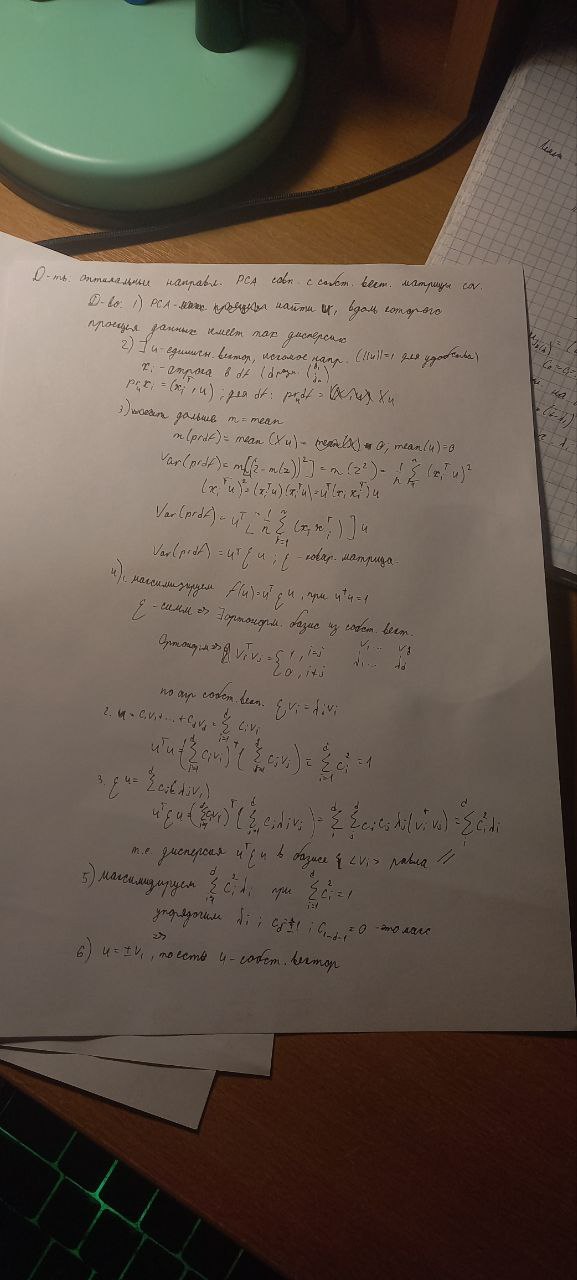 D-ть: оптимальные направл. PCA совп. с собст. вект. матрицы cov.
D-во: 1) PCA - найти u, вдоль которого
проекция данных имеет max дисперсию
2) ] u - единичн. вектор, искомое напр. (||u||=1 для удобства)
x_i - строка в df
pr_u x_i = (x_i^T, u) ; для df: pr_u df = Xu
3) дальше m = mean
m(prdf) = mean(Xu) = mean(X) = 0; mean(u)=0
Var(prdf) = m[(z - m(z))^2] = m(z^2) = 1/n Σ_{i=1}^n (x_i^T u)^2
(x_i^T u)^2 = (x_i^T u)(x_i^T u) = u^T(x_i x_i^T)u
Var(prdf) = u^T [1/n Σ_{i=1}^n (x_i x_i^T)] u
Var(prdf) = u^T ξ u ; ξ - ковар. матрица.
4) 1. максимизируем f(u) = u^T ξ u, при u^T u = 1
ξ - симм => ∃ ортонорм. базис из собст. вект.
Ортонорм => v_i^T v_j = {1, i=j 0, i≠j v_1 ... v_d λ_1 ... λ_d
по опр собст. вект. ξ v_i = λ_i v_i
2. u = c_1 v_1 + ... + c_d v_d = Σ_{i=1}^d c_i v_i
u^T u = (Σ_{i=1}^d c_i v_i)^T (Σ_{j=1}^d c_j v_j) = Σ_{i=1}^d c_i^2 = 1
3. ξ u = Σ^d c_j (λ_j v_j)
u^T ξ u = (Σ_{i=1}^d c_i v_i)^T (Σ_{j=1}^d c_j λ_j v_j) = Σ_i^d Σ_j^d c_i c_j λ_j (v_i^T v_j) = Σ_i^d c_i^2 λ_i
т.е. дисперсия u^T ξ u в базисе {<v_i> равна //
5) максимизируем Σ_{i=1}^d c_i^2 λ_i при Σ_{i=1}^d c_i^2 = 1
упорядочим λ_i ; c_d = ±1 ; c_{1-d-1} = 0 - это макс
=>
6) u = ± v_1, то есть u - собст. вектор